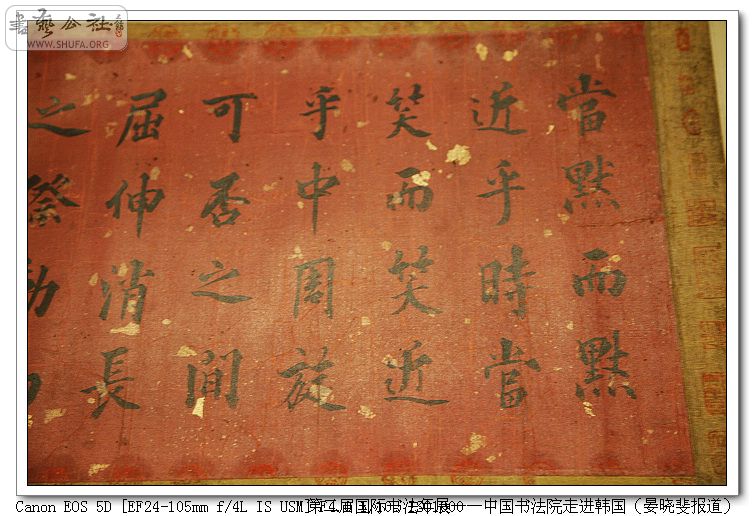 書藝公社
WWW.SHUFA.ORG
當默而默
近乎時當
笑而笑近
乎中周旋
可否之間
屈伸消長
之際動
Canon EOS 5D [EF24-105mm f/4L IS USM]
第二届国际书法年展——中国书法院走进韩国（晏晓斐报道）